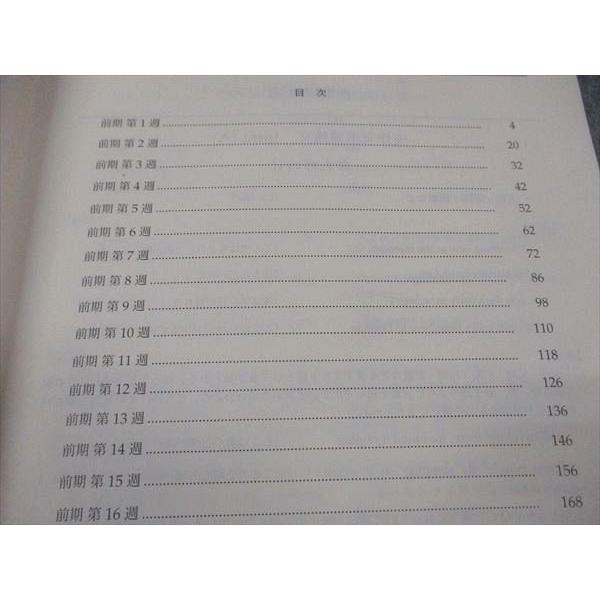 目 次
前期 第 1 週 4
前期 第 2 週 20
前期 第 3 週 32
前期 第 4 週 42
前期 第 5 週 52
前期 第 6 週 62
前期 第 7 週 72
前期 第 8 週 86
前期 第 9 週 98
前期 第 10 週 110
前期 第 11 週 118
前期 第 12 週 126
前期 第 13 週 136
前期 第 14 週 146
前期 第 15 週 156
前期 第 16 週 168